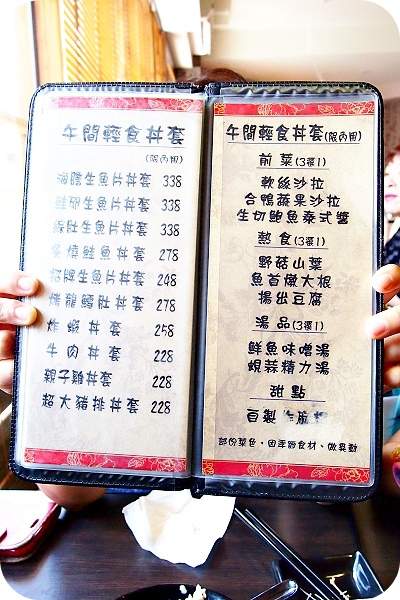 午間輕食丼套
(限內用)
海膽生魚片丼套 338
鮭卵生魚片丼套 338
綜肚生魚片丼套 338
炙燒鮭魚丼套 278
招牌生魚片丼套 248
烤龍鱈肚丼套 278
炸蝦丼套 258
牛肉丼套 228
親子雞丼套 228
超大豬排丼套 228
午間輕食丼套(限內用)
前菜(3選1)
軟絲沙拉
合鴨蔬果沙拉
生切鮑魚泰式醬
熱食(3選1)
野菇山葉
魚首燉大根
揚出豆腐
湯品(3選1)
鮮魚味噌湯
蜆蒜精力湯
甜點
自製
部份菜色,因季節食材、做異動